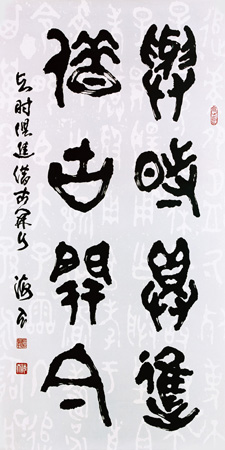 與時俱進
借古開今
与时俱進借古开今
海